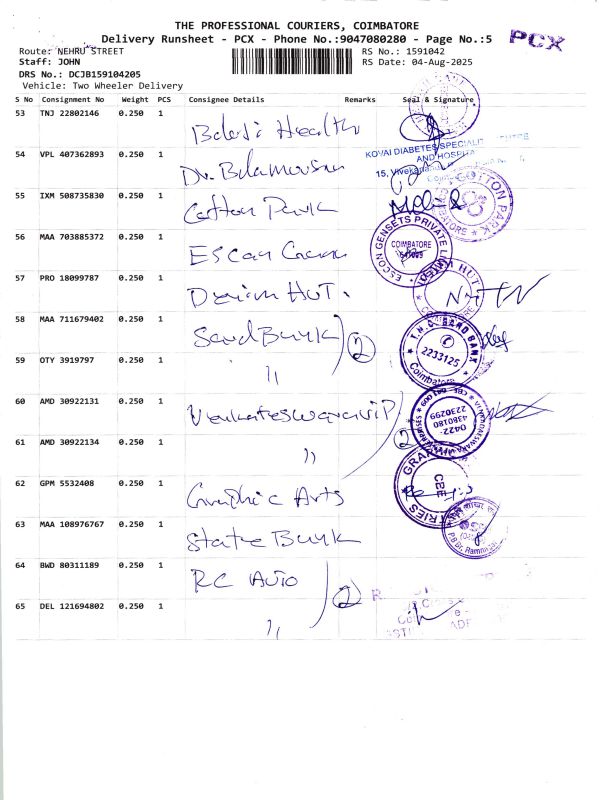 THE PROFESSIONAL COURIERS, COIMBATORE
Delivery Runsheet - PCX - Phone No.:9047080280 - Page No.:5
PCX
Route: NEHRU STREET
RS No.: 1591042
Staff: JOHN
RS Date: 04-Aug-2025
DRS No.: DCJB159104205
Vehicle: Two Wheeler Delivery
S No Consignment No Weight PCS Consignee Details Remarks Seal & Signature
53 TNJ 22802146 0.250 1 Health
54 VPL 407362893 0.250 1 Dr.
KOVAI DIABETES SPECIALIT CENTRE
AND HOSPI
15, Vivekana
55 IXM 508735830 0.250 1 Cotton Park
COTTON PARK
56 MAA 703885372 0.250 1 Escon
ESCON GENSETS PRIVATE LIMITED
COIMBATORE
57 PRO 18099787 0.250 1 Design HUT.
HUT
58 MAA 711679402 0.250 1 Sand Bank 2
T.N.C. BAND BANK
2233125
Coimbatore
59 OTY 3919797 0.250 1 "
60 AMD 30922131 0.250 1 Venkateswara ViP
0422-
4380180
2230299
61 AMD 30922134 0.250 1 " 2
62 GPM 5532408 0.250 1 Graphic Arts
CBE
63 MAA 108976767 0.250 1 State Bank
64 BWD 80311189 0.250 1 RC Auto 2
65 DEL 121694802 0.250 1 "